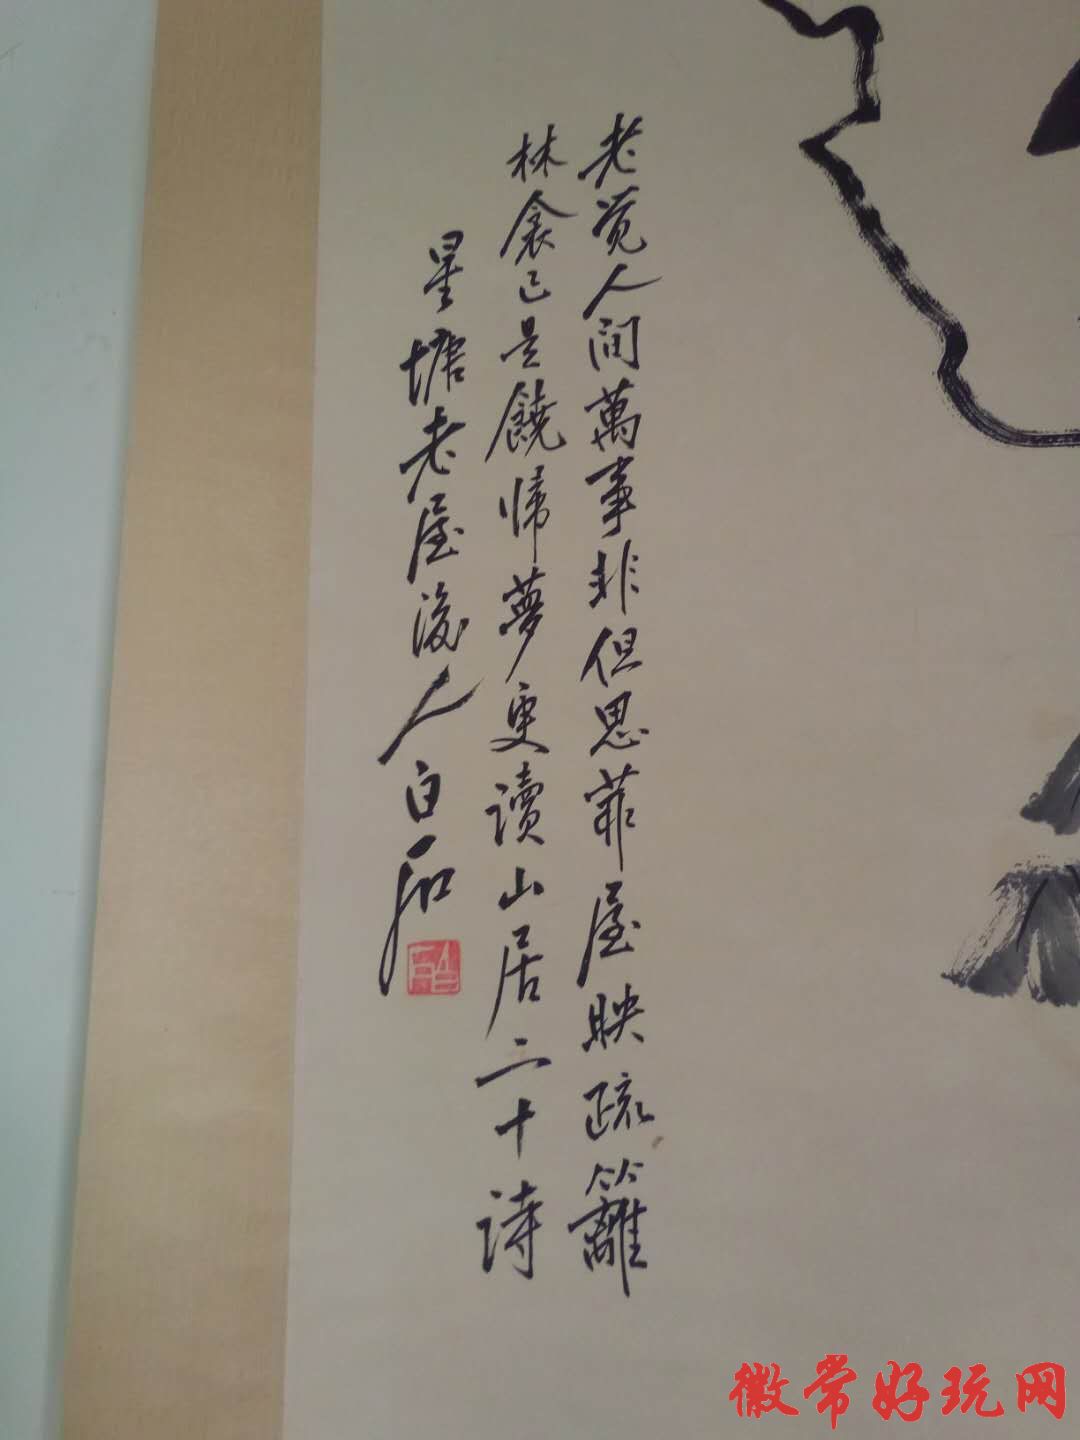 老觉人间萬事非但思菲屋映疏籬
林衾已是饒歸夢更讀山居二十诗
星塘老屋後人白石
徽常好玩网